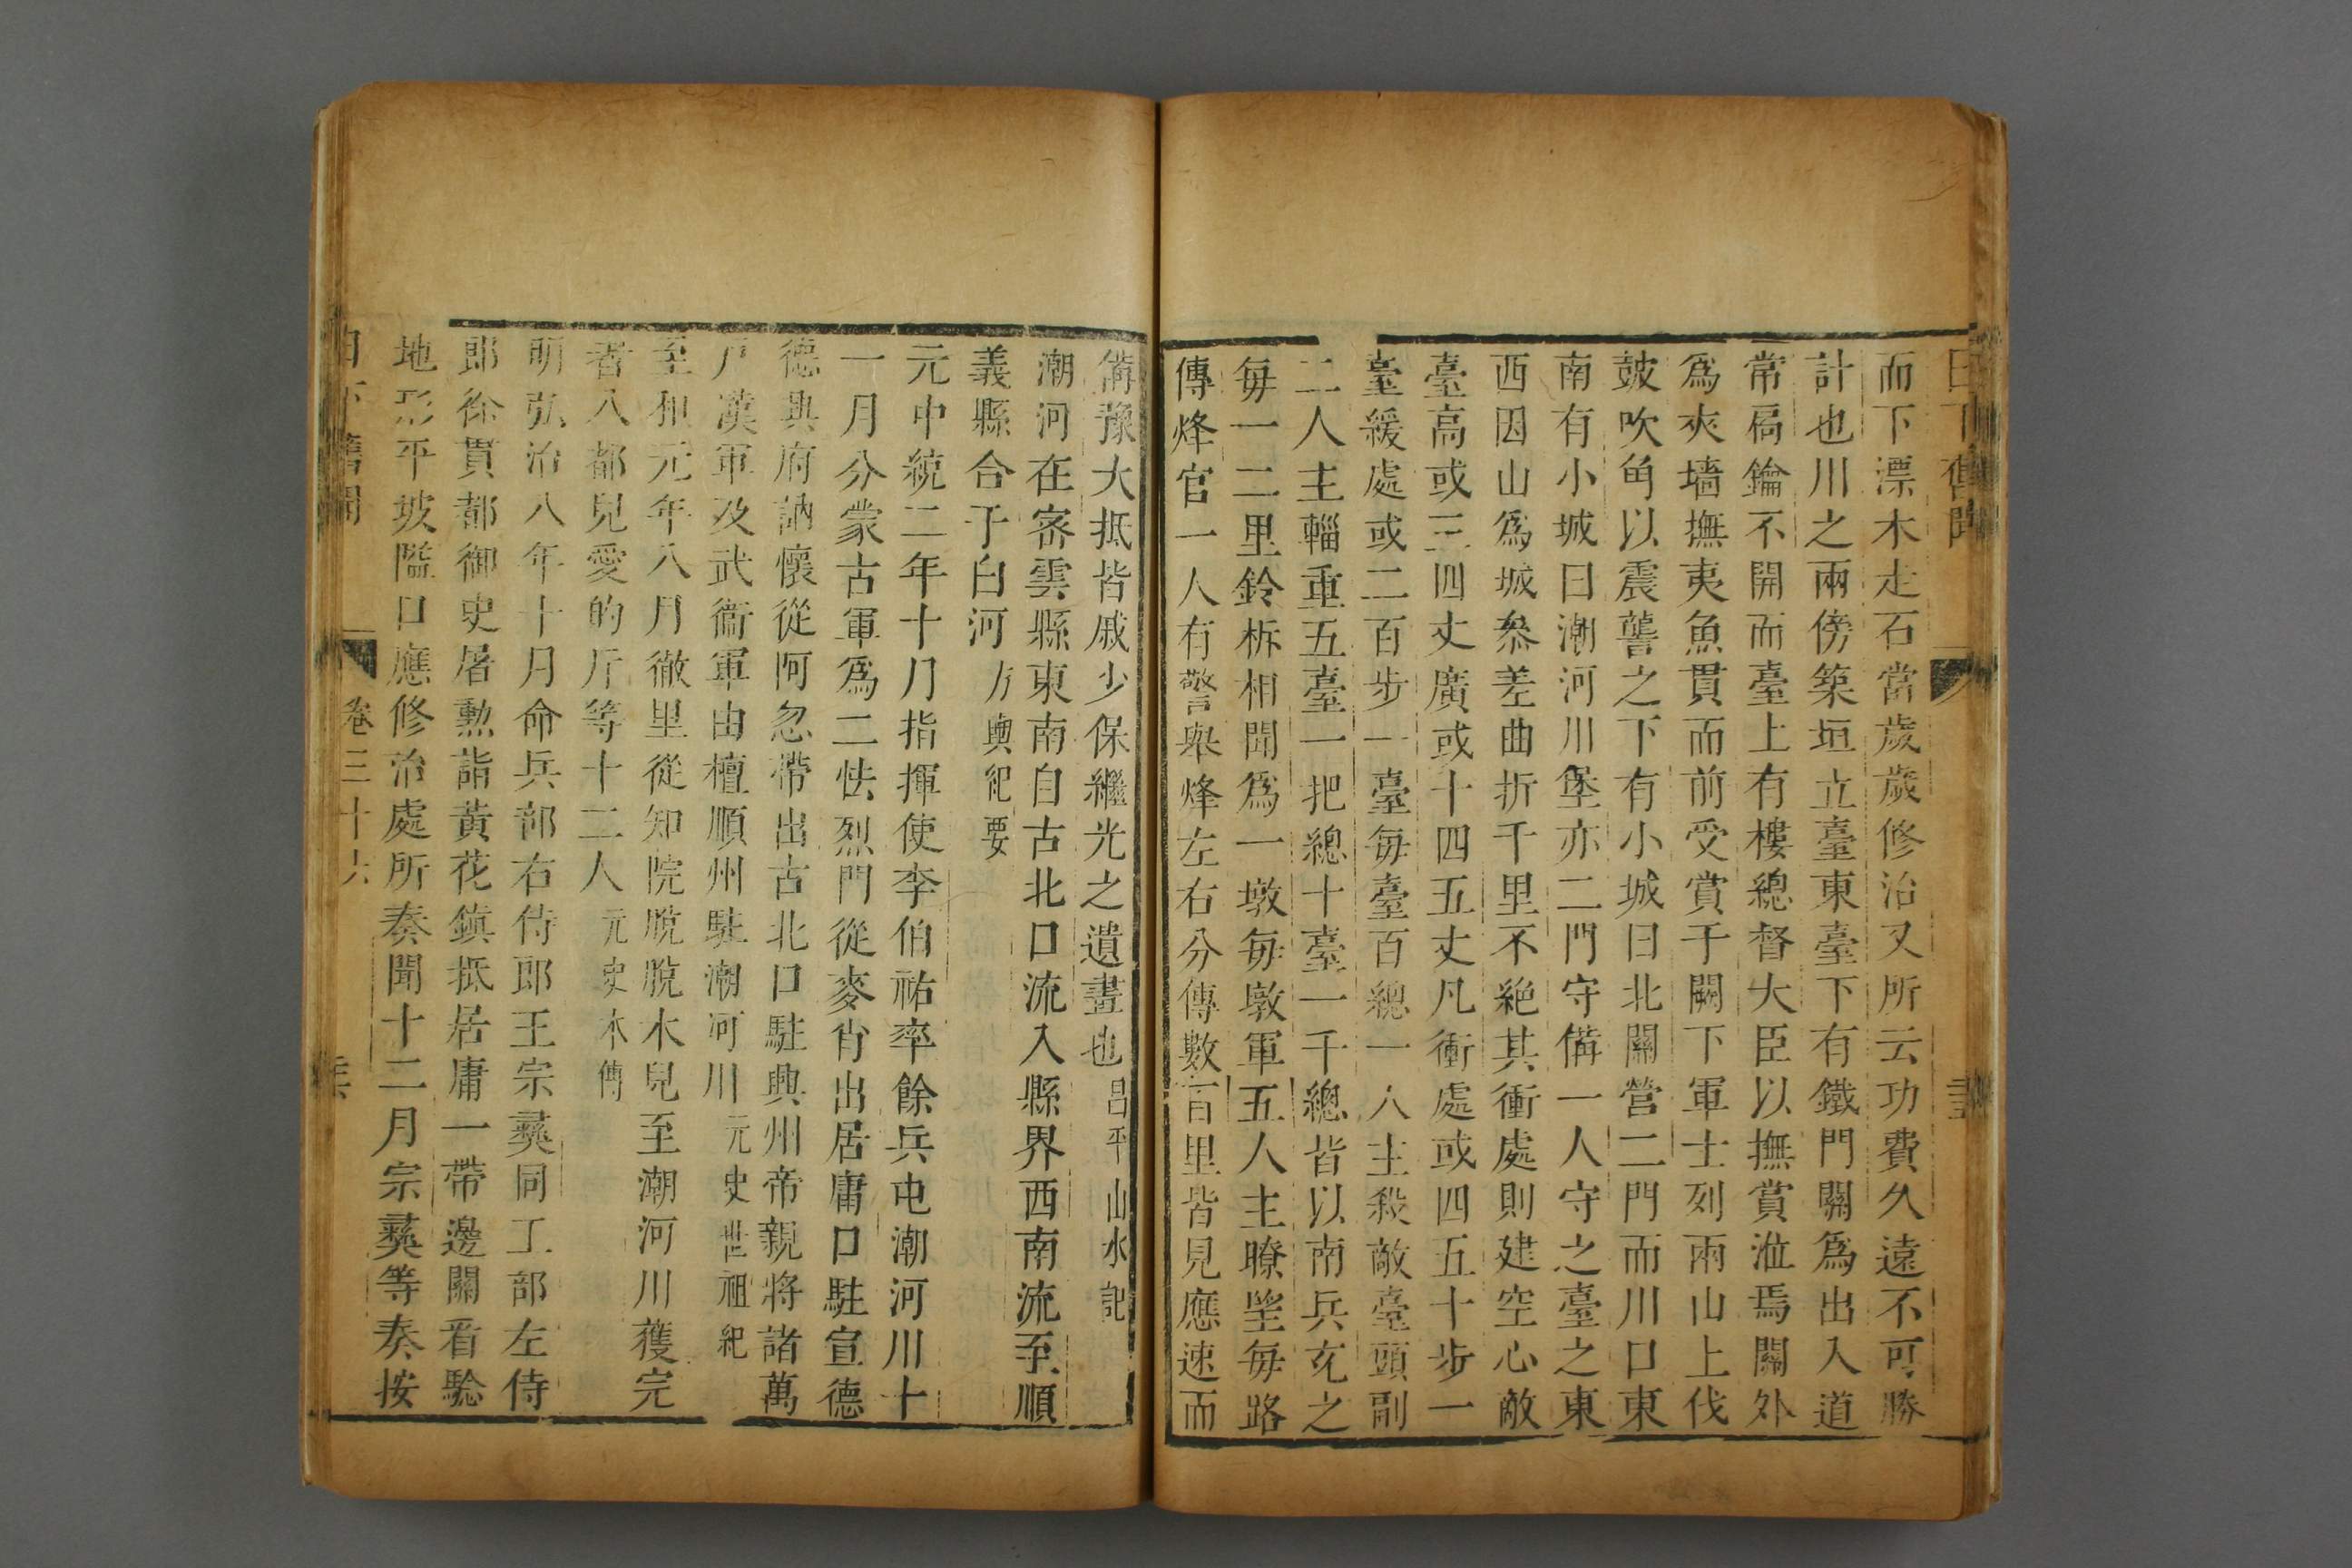 日下舊聞
而下漂木走石當歲歲修治又所云功費久遠不可勝
計也川之兩傍築垣立臺東臺下有鐵門關爲出入道
常扃鑰不開而臺上有樓總督大臣以撫賞涖焉關外
爲夾墻撫夷魚貫而前受賞于闕下軍士列兩山上伐
皷吹角以震讋之下有小城曰北關營二門而川口東
南有小城曰潮河川堡亦二門守備一人守之臺之東
西因山爲城叅差曲折千里不絶其衝處則建空心敵
臺高或三四丈廣或十四五丈凡衝處或四五十步一
臺緩處或二百步一臺每臺百總一人主殺敵臺頭副
二人主輜重五臺一把總十臺一千總皆以南兵充之
每一二里鈴柝相聞爲一墩每墩軍五人主瞭望每路
傳烽官一人有警舉烽左右分傳數百里皆見應速而
備豫大抵皆戚少保繼光之遺畫也昌平山水記
潮河在密雲縣東南自古北口流入縣界西南流至順
義縣合于白河方輿紀要
元中統二年十月指揮使李伯祐率餘兵屯潮河川十
一月分蒙古軍爲二怯烈門從麥肖出居庸口駐宣德
德興府訥懷從阿忽帶出古北口駐興州帝親將諸萬
戶漢軍及武衞軍由檀順州駐潮河川元史世祖紀
至和元年八月徹里從知院脫脫木兒至潮河川獲完
者八都兒愛的斤等十二人元史本傳
明弘治八年十月命兵部右侍郎王宗彝同工部左侍
郎徐貫都御史屠勲詣黃花鎮抵居庸一帶邊關看騐
地形平坡隘口應修治處所奏聞十二月宗彝等奏按
日下舊聞 卷三十六